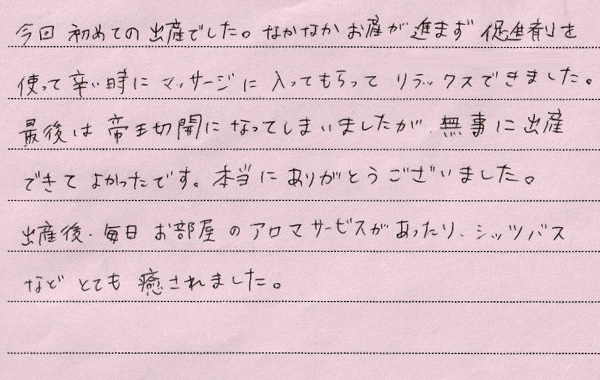 今回 初めての出産でした。なかなかお産が進まず 促進剤を
使って辛い時に マッサージに 入ってもらって リラックスできました。
最後は 帝王切開になってしまいましたが、無事に出産
できて よかったです。本当にありがとうございました。
出産後、毎日 お部屋のアロマサービスがあったり、シッツバス
など とても 癒されました。